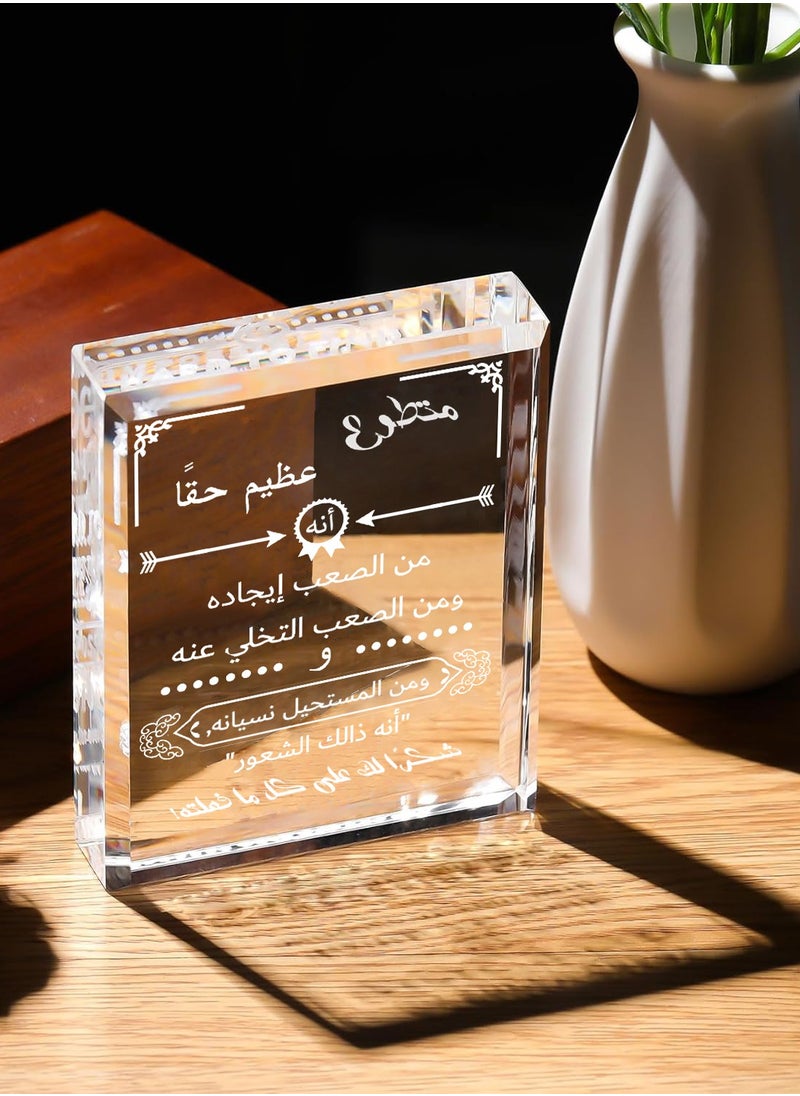 متطوع
عظيم حقًا
أنه
من الصعب إيجاده
ومن الصعب التخلي عنه
و
ومن المستحيل نسيانه,
"أنه ذالك الشعور"
شكرًا لك على كل ما فعلته!